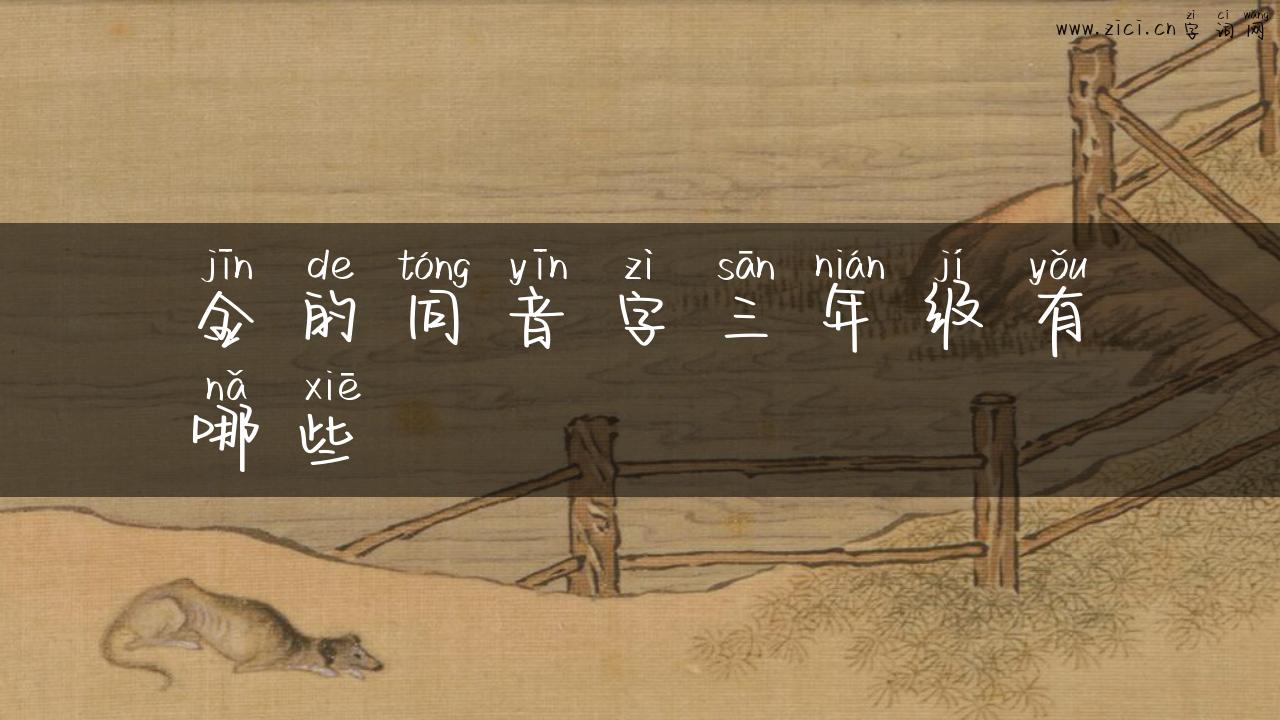 zì cí wǎng
www.zici.cn 字词网
jīn de tóng yīn zì sān nián jí yǒu
金的同音字三年级有
nǎ xiē
哪些